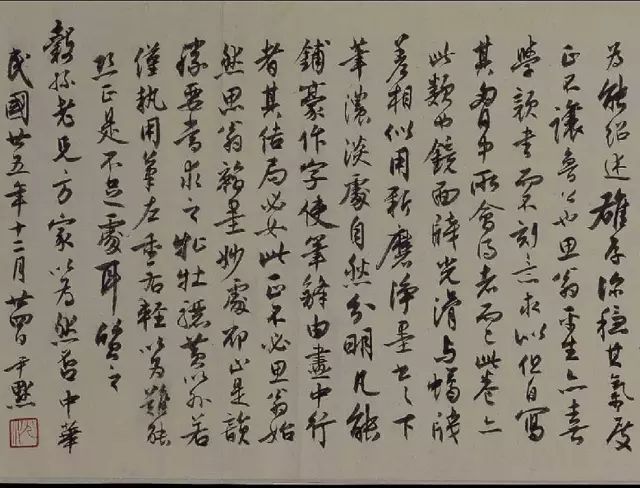 為能紹述雄厚深穩其氣度
正不讓魯公也思翁平生亦喜
學顏書而不刻意求似但自寫
其胷中所會得者而已此卷亦
此類也鏡面牋光滑与蠟牋
差相似用新磨淨墨書之下
筆濃淡處自然分明凡能
鋪豪作字使筆鋒由畫中行
者其結局必如此正不必思翁始
然思翁翰墨妙處却正是韻
勝要當求之牝牡驪黃以外若
僅執用筆左重右輕以為難能
正是不足處耳 質之
穀孫老兄方家以為然否中華
民國廿五年十二月廿四日尹默
沈